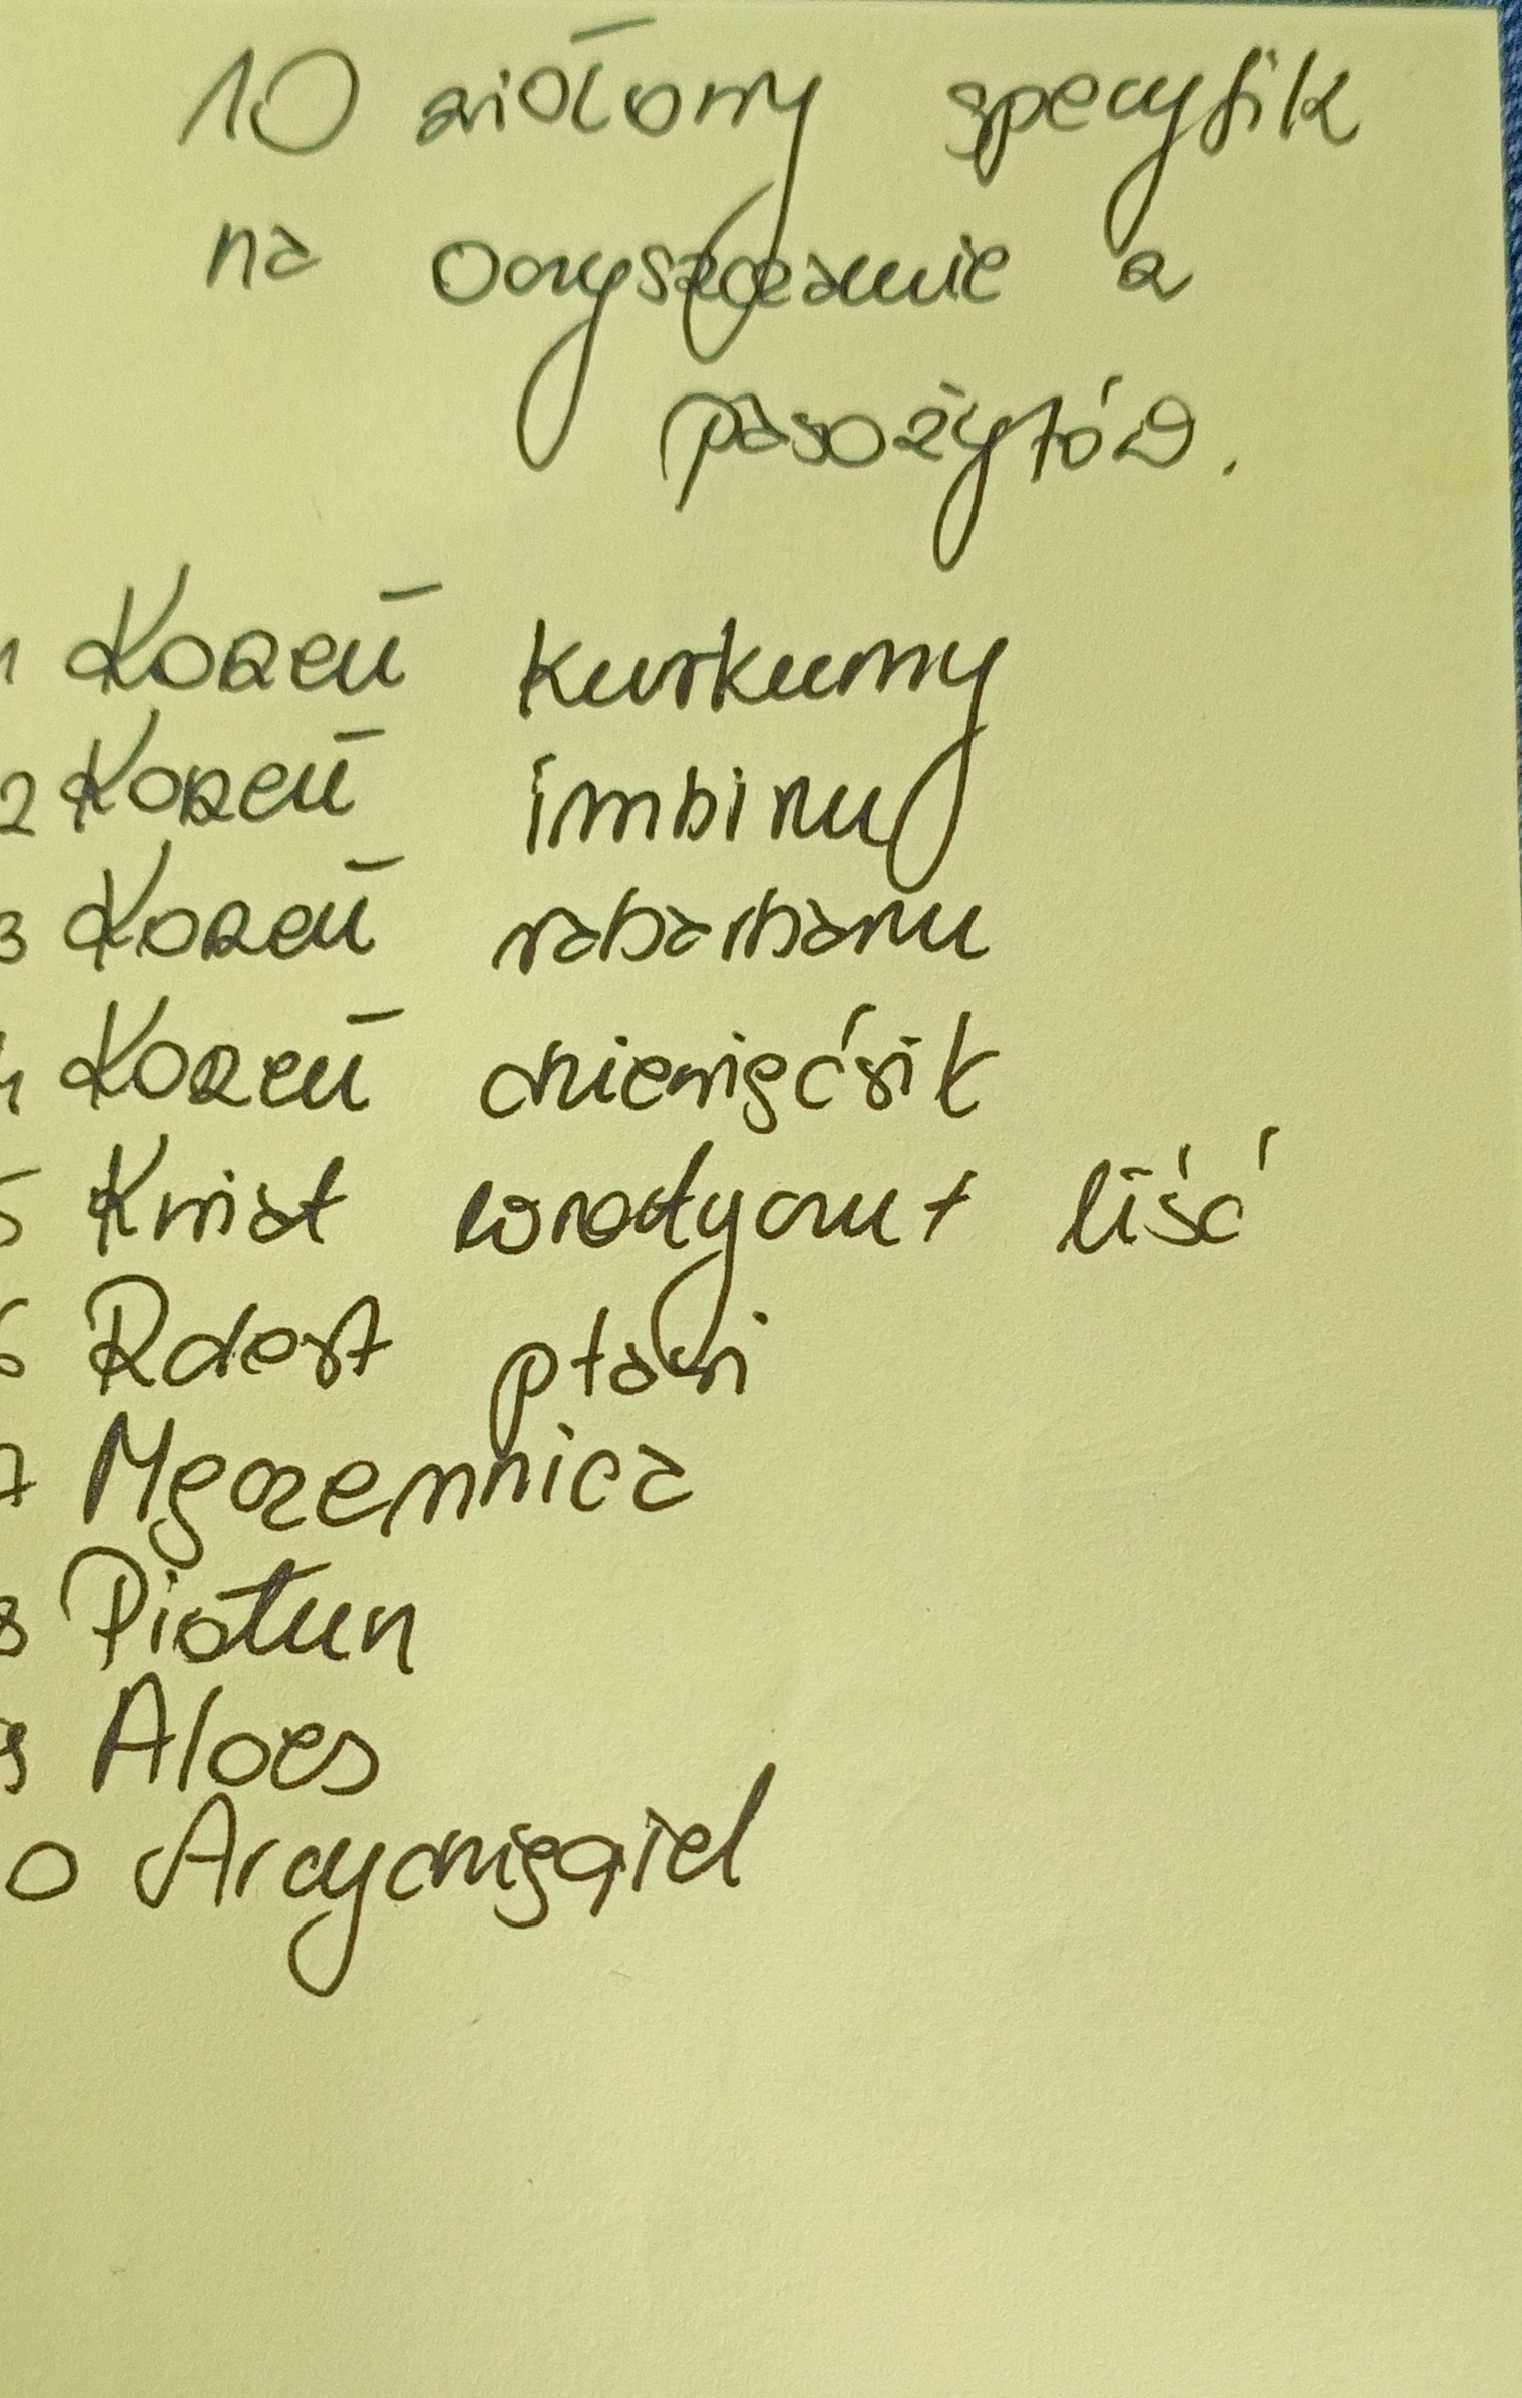 10 ziołowy specyfik
na oczyszczanie z
pasożytów.
1 Korzeń kurkumy
2 Korzeń imbiru
3 Korzeń rabarbaru
4 Korzeń dziewięćsił
5 Kwiat wrotyczu + liść
6 Rdest ptasi
7 Męczennica
8 Piołun
9 Aloes
0 Arcydzięgiel